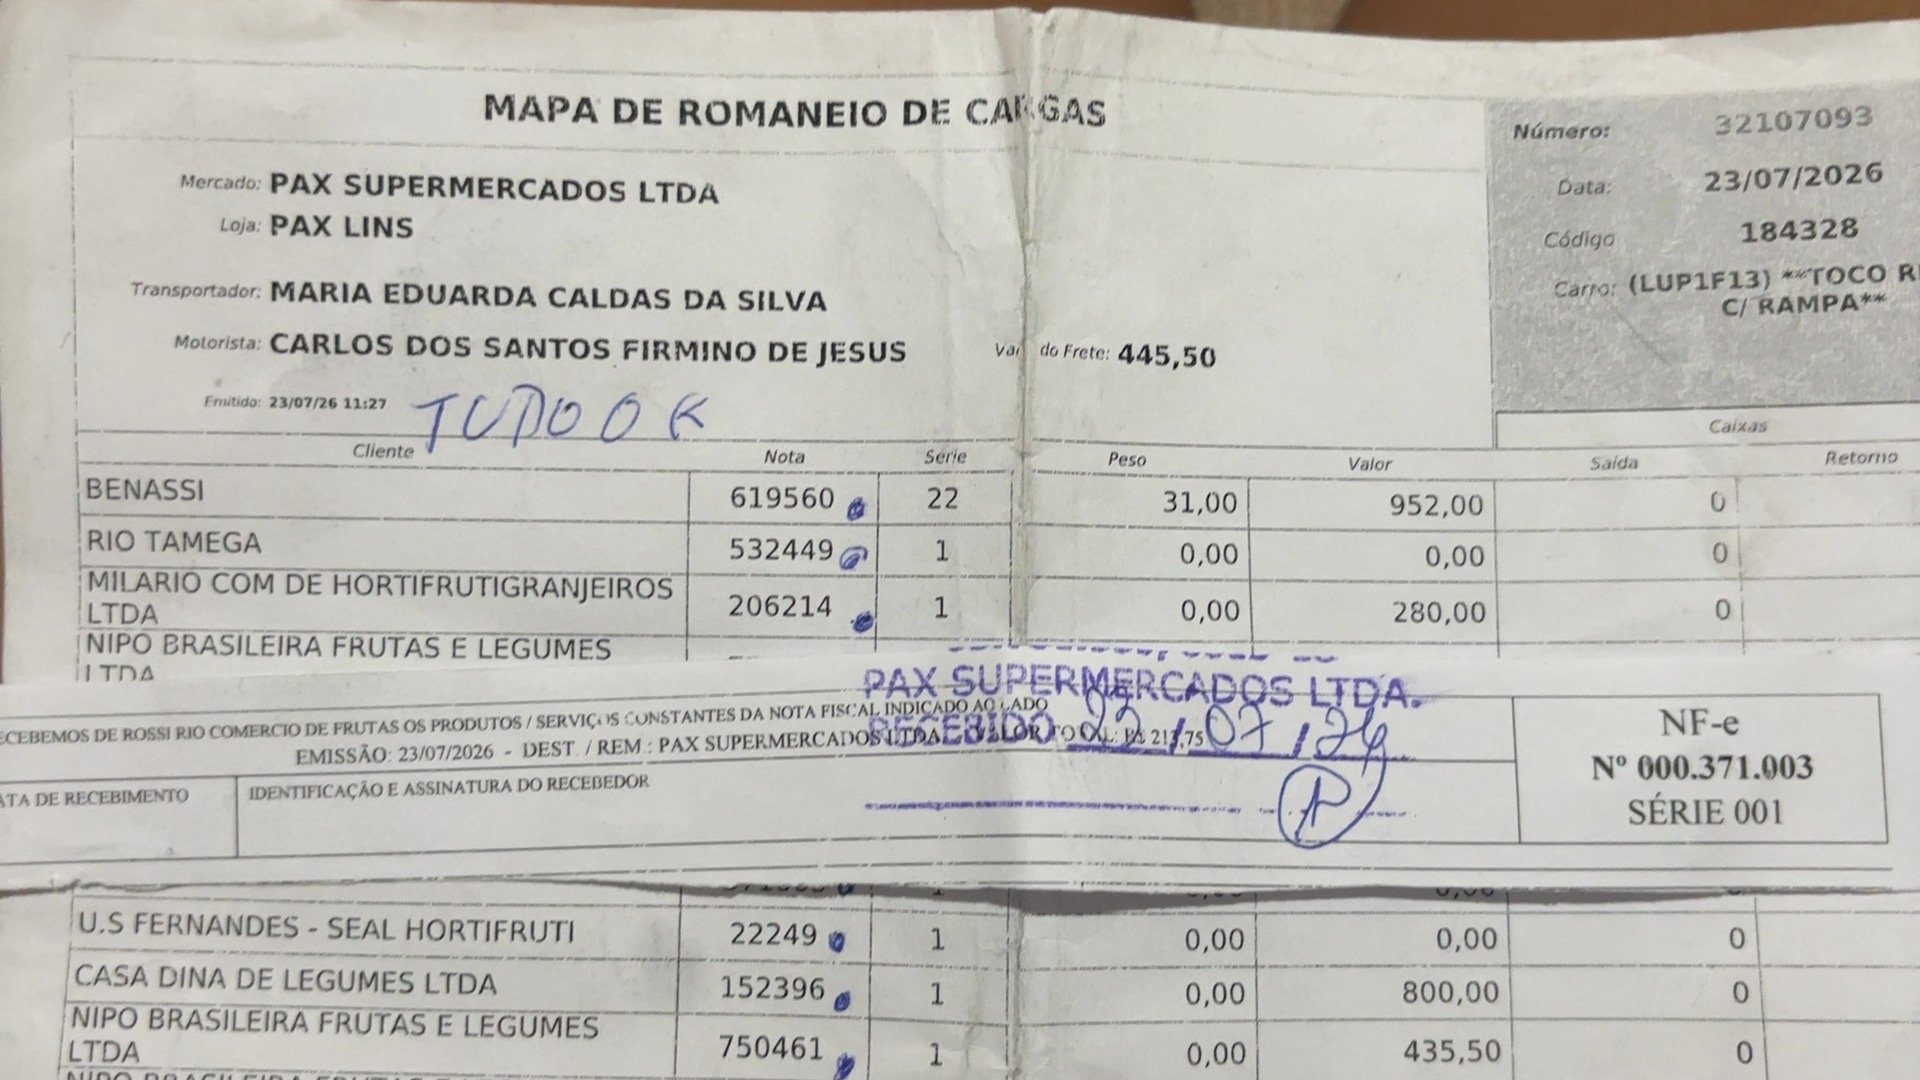 MAPA DE ROMANEIO DE CARGAS
Número: 32107093
Data: 23/07/2026
Código 184328
Carro: (LUP1F13) **TOCO R
C/ RAMPA**
Mercado: PAX SUPERMERCADOS LTDA
Loja: PAX LINS
Transportador: MARIA EDUARDA CALDAS DA SILVA
Motorista: CARLOS DOS SANTOS FIRMINO DE JESUS
do Frete: 445,50
Emitido: 23/07/26 11:27
TUDO OK
Caixas
Cliente Nota Série Peso Valor Saída Retorno
BENASSI 619560 22 31,00 952,00 0
RIO TAMEGA 532449 1 0,00 0,00 0
MILARIO COM DE HORTIFRUTIGRANJEIROS
LTDA 206214 1 0,00 280,00 0
NIPO BRASILEIRA FRUTAS E LEGUMES
LTDA
PAX SUPERMERCADOS LTDA.
RECEBIDO / 07 /
ECEBEMOS DE ROSSI RIO COMERCIO DE FRUTAS OS PRODUTOS / SERVIÇOS CONSTANTES DA NOTA FISCAL INDICADO AO LADO
EMISSÃO: 23/07/2026 - DEST. / REM.: PAX SUPERMERCADOS LTDA VALOR
NF-e
Nº 000.371.003
SÉRIE 001
ATA DE RECEBIMENTO
IDENTIFICAÇÃO E ASSINATURA DO RECEBEDOR
U.S FERNANDES - SEAL HORTIFRUTI 22249 1 0,00 0,00 0
CASA DINA DE LEGUMES LTDA 152396 1 0,00 800,00 0
NIPO BRASILEIRA FRUTAS E LEGUMES
LTDA 750461 1 0,00 435,50 0